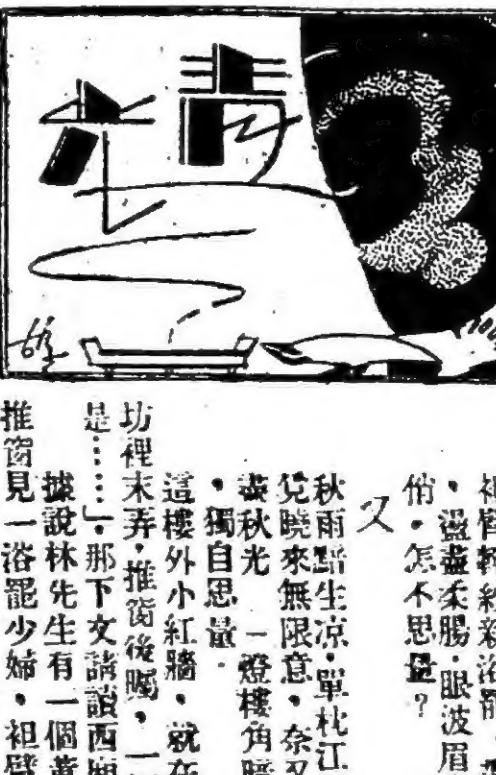 青光
輕綃新浴罷
・盪盡柔腸・眼波眉
俏・怎不思量？
又
秋雨黯生凉・單枕江
曉來無限意・奈
秋光　一燈樓角暗
・獨自思量・
這樓外小紅牆・就在
坊裡末弄・推窗後矚・一
是……」・那下文請讀西廂
據說林先生有一個
推窗見一浴罷少婦・袒臂